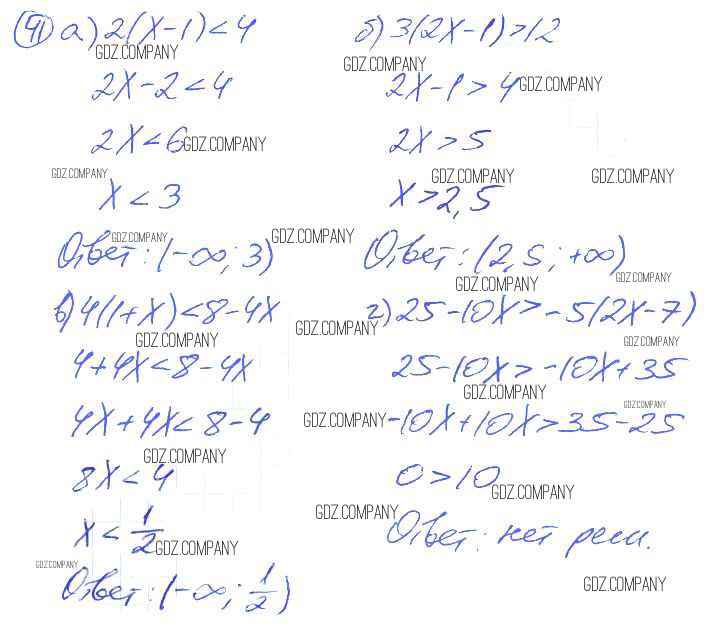 41 а) 2(x-1)<4
GDZ.COMPANY
2x-2<4
2x<6 GDZ.COMPANY
GDZ.COMPANY
x<3
GDZ.COMPANY
Ответ: (-∞; 3) GDZ.COMPANY
б) 3(2x-1)>12
GDZ.COMPANY
2x-1>4 GDZ.COMPANY
2x>5
GDZ.COMPANY GDZ.COMPANY
x>2,5
Ответ: (2,5; +∞)
GDZ.COMPANY GDZ.COMPANY
в) 4(1+x)<8-4x
GDZ.COMPANY GDZ.COMPANY
4+4x<8-4x
4x+4x<8-4
GDZ.COMPANY
8x<4
x<1/2
GDZ.COMPANY
GDZ.COMPANY
Ответ: (-∞; 1/2)
г) 25-10x>-5(2x-7)
GDZ.COMPANY
25-10x>-10x+35
GDZ.COMPANY GDZ.COMPANY
GDZ.COMPANY -10x+10x>35-25
0>10
GDZ.COMPANY
GDZ.COMPANY
Ответ: нет реш.
GDZ.COMPANY